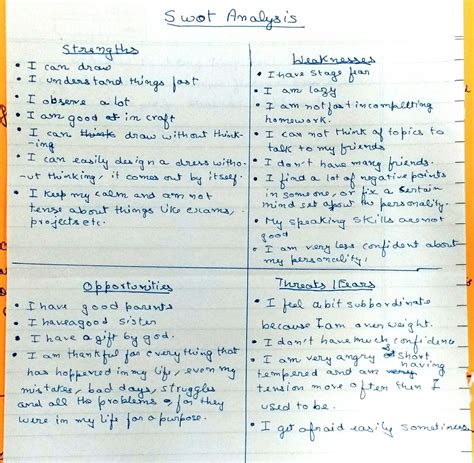 Swot Analysis
Strengths
• I can draw
• I understand things fast
• I observe a lot
• I am good at in craft
• I can think draw without think-
-ing
• I can easily design a dress witho-
-ut thinking, it comes out by itself.
• I keep my calm and am not
tense about things like exams,
projects etc.
Weaknesses
• I have stage fear
• I am lazy
• I am not fast in completting
homework
• I can not think of topics to
talk to my friends
• I don't have many friends.
• I find a lot of negative points
in someone, or fix a certain
mind set about the personality.
• My speaking skills are not
good
• I am very less confident about
my personality.
Opportunities
• I have good parents
• I have a good sister
• I have a gift by god.
• I am thankful for everything that
has happened in my life, even my
mistakes, bad days, struggles
and all the problems, for they
were in my life for a purpose.
Threats / Fears
• I feel a bit subbordinate
because I am over weight.
• I don't have much confidence
• I am very angry & short
tempered and am very having
tension more often then I
used to be.
• I get afraid easily sometimes